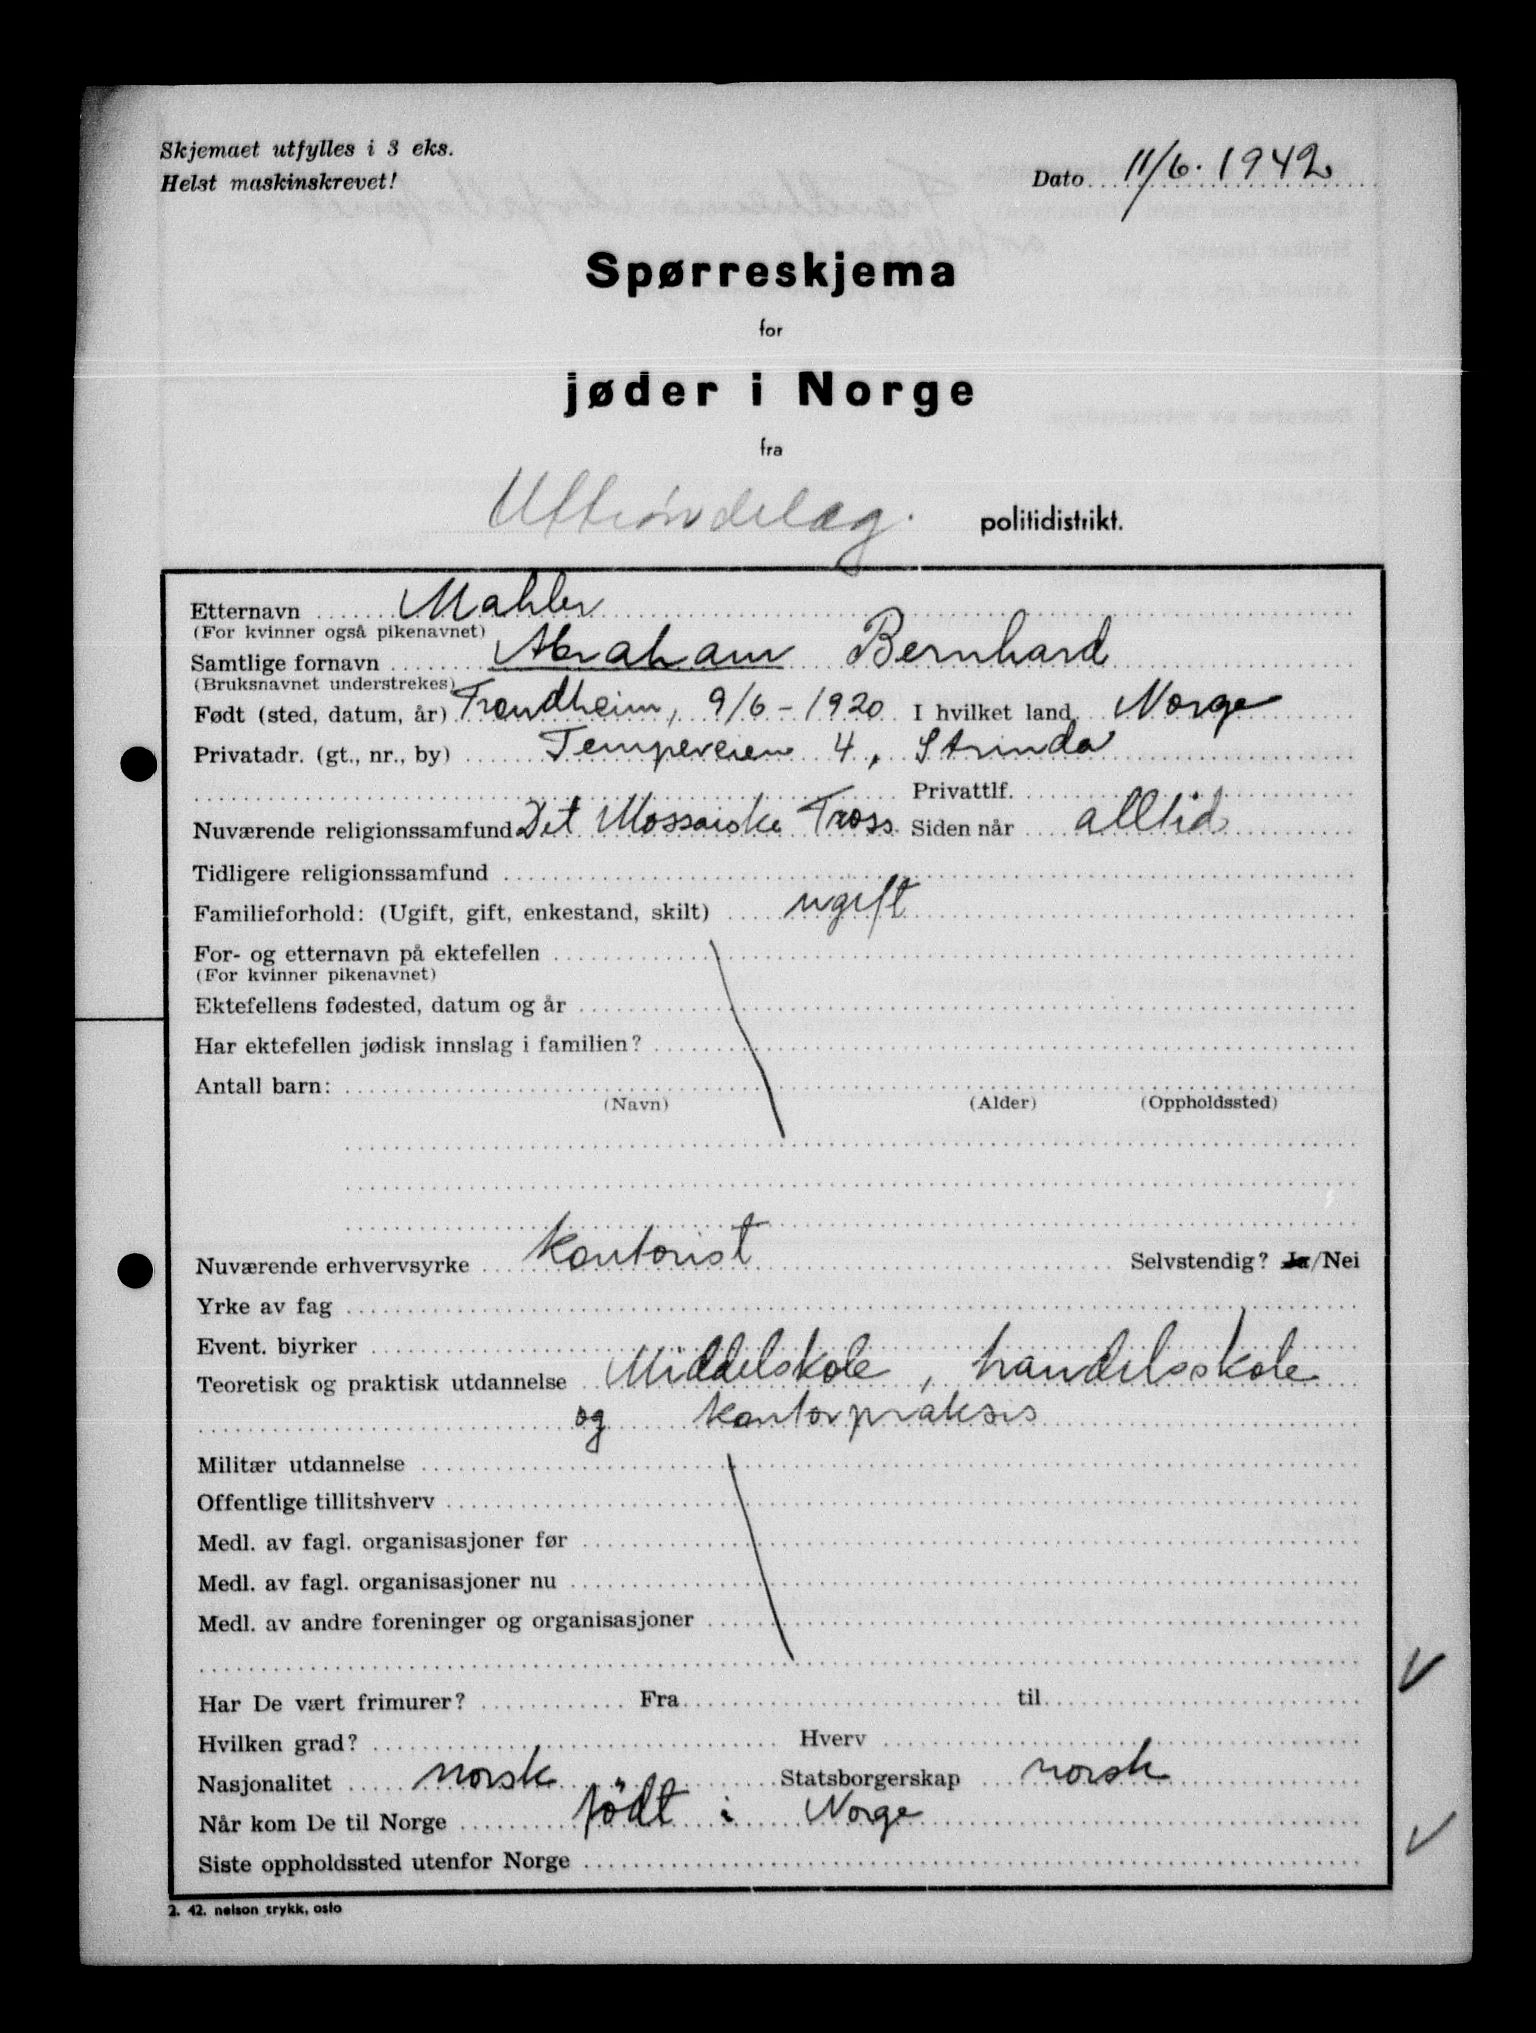 Skjemaet utfylles i 3 eks.
Helst maskinskrevet!
Dato 11/6. 1942
Spørreskjema
for
jøder i Norge
fra
Uttrøndelag. politidistrikt.
Etternavn Mahler
(For kvinner også pikenavnet)
Samtlige fornavn Abraham Bernhard
(Bruksnavnet understrekes)
Født (sted, datum, år) Trondheim, 9/6 - 1920 I hvilket land Norge
Privatadr. (gt., nr., by) Tempeveien 4, Strinda
Privattlf.
Nuværende religionssamfund Det Mossaiske Tross. Siden når alltid
Tidligere religionssamfund
Familieforhold: (Ugift, gift, enkestand, skilt) ugift
For- og etternavn på ektefellen
(For kvinner pikenavnet)
Ektefellens fødested, datum og år
Har ektefellen jødisk innslag i familien?
Antall barn:
(Navn) (Alder) (Oppholdssted)
Nuværende erhvervsyrke Kontorist Selvstendig? Ja/Nei
Yrke av fag
Event. biyrker
Teoretisk og praktisk utdannelse Middelskole, handelsskole
og kontorpraksis
Militær utdannelse
Offentlige tillitshverv
Medl. av fagl. organisasjoner før
Medl. av fagl. organisasjoner nu
Medl. av andre foreninger og organisasjoner
Har De vært frimurer? Fra til
Hvilken grad? Hverv
Nasjonalitet norsk Statsborgerskap norsk
Når kom De til Norge født i Norge
Siste oppholdssted utenfor Norge
2. 42. nelson trykk, oslo